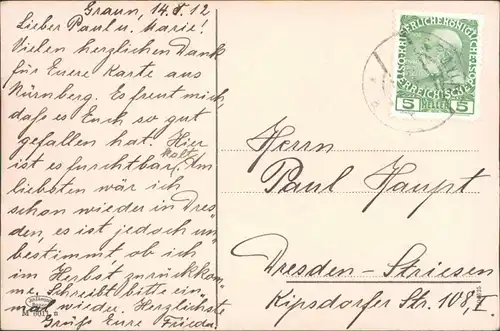 Graun, 14.8.12
Lieber Paul u. Marie!
Vielen herzlichen Dank
für Euere Karte aus
Nürnberg. Es freut mich,
daß es Euch so gut
gefallen hat. Hier
ist es furchtbar kalt. Am
liebsten wär ich
schon wieder in Dres-
den, es ist jedoch un
bestimmt, ob ich
im Herbst zurückkom-
me. Schreibt bitte ein
mal wieder. Herzlichste
Grüße Eure Frieda.
5 HELLER 5
Herrn
Paul Haupt
Dresden-Striesen
Kipsdorfer Str. 108, I